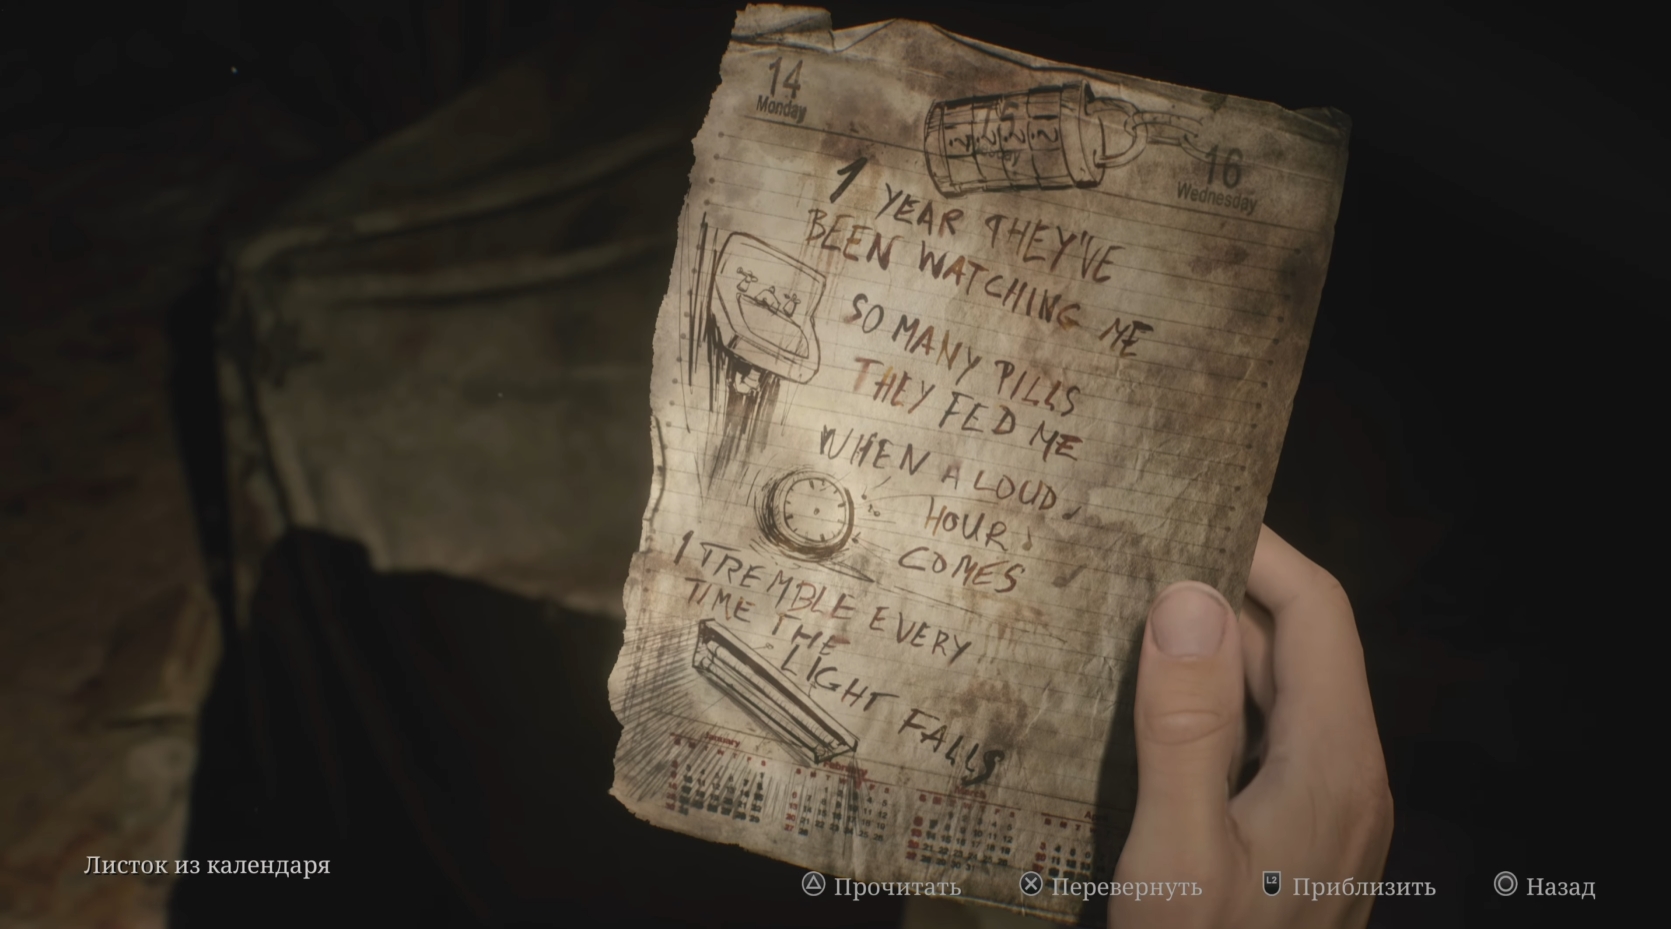 14
Monday
16
Wednesday
1 YEAR THEY'VE
BEEN WATCHING ME
SO MANY PILLS
THEY FED ME
WHEN A LOUD
HOUR
COMES
I TREMBLE EVERY
TIME THE
LIGHT FALLS
January
February
Листок из календаря
Прочитать
Перевернуть
L2 Приблизить
Назад